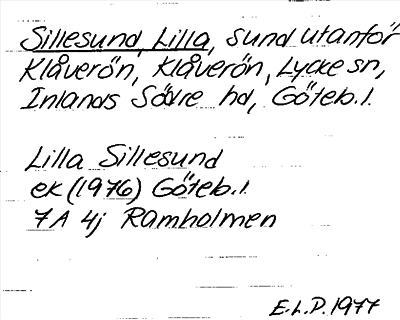 Sillesund, Lilla, sund utanför
Klåverön, Klåverön, Lycke sn,
Inlands Södre hd, Göteb. l.
Lilla Sillesund
ek (1976) Göteb. l.
7A 4j Ramholmen
E.L.P. 1977